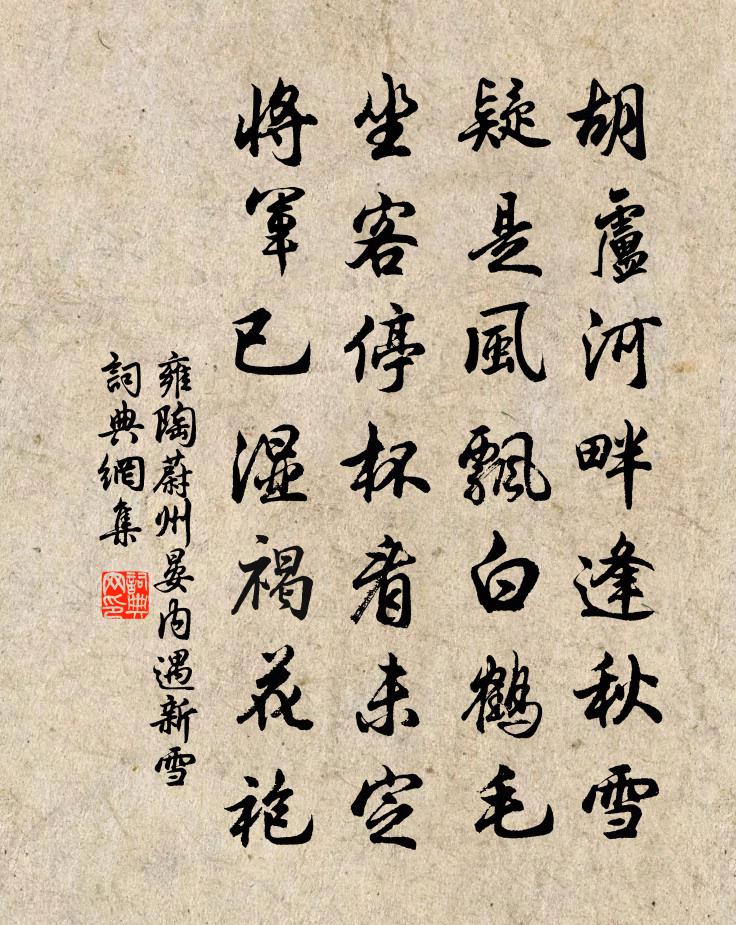 胡盧河畔逢秋雪
疑是風飄白鶴毛
坐客停杯看未定
將軍已濕褐花袍
雍陶蔚州晏内遇新雪
詞典網集
詞典網印